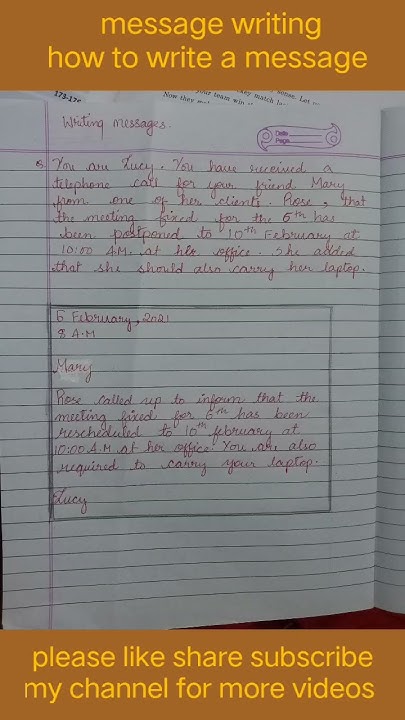 message writing
how to write a message
173-17
your team win
key match
sense. Let
Now they
Writing messages.
Date
Page
Q. You are Lucy. You have received a
telephone call for your friend Mary
from one of her clients. Rose, that
the meeting fixed for the 6th has
been postponed to 10th February at
10:00 A.M. at her office. She added
that she should also carry her laptop.
6 February, 2021
8 A.M
Mary
Rose called up to inform that the
meeting fixed for 6th has been
rescheduled to 10th february at
10:00 A.M at her office. You are also
required to carry your laptop.
Lucy
please like share subscribe
my channel for more videos